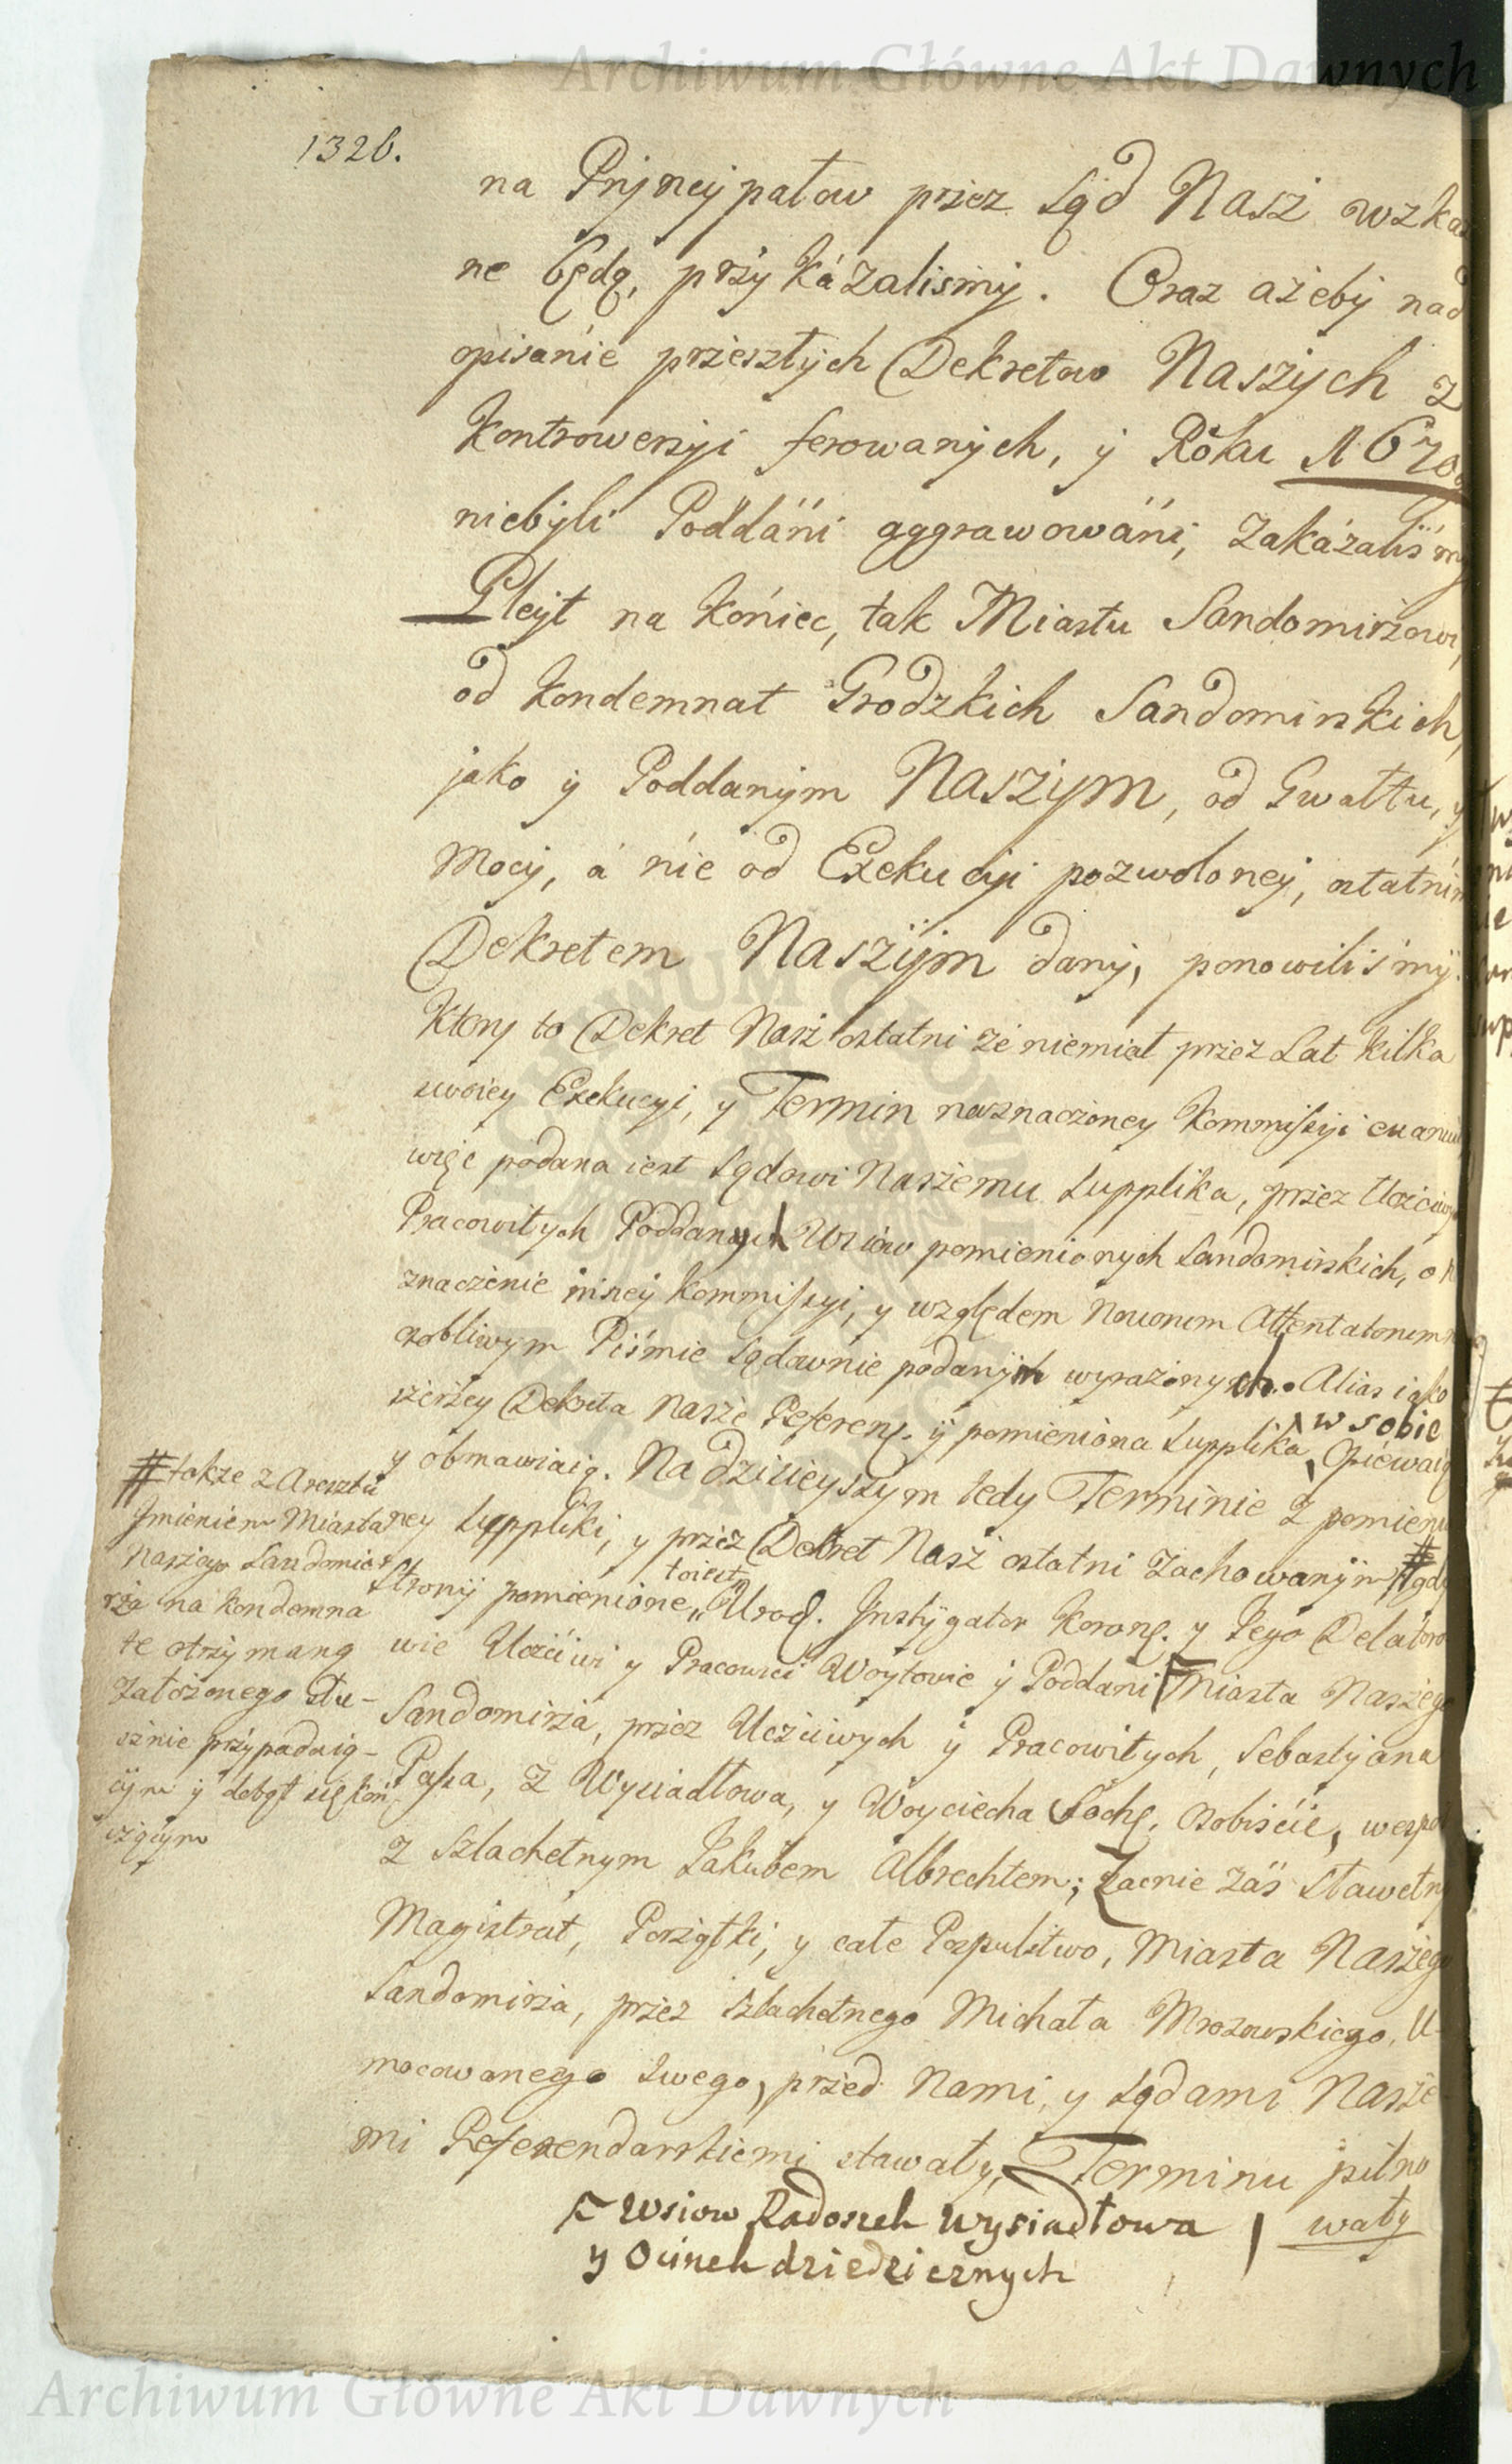 Archiwum Główne Akt Dawnych
1326.
na Pryncypałow przez Sąd Nasz wzka
ne będą, przykazalismy. Oraz ażeby nad
opisanie przeszłych Dekretow Naszych z
Kontrowersyi ferowanych, y Roku 1670
niebyli Poddani aggrawowani, zakazaliśmy
Gleyt na koniec, tak Miastu Sandomirzowi,
od kondemnat Grodzkich Sandomirskich,
jako y Poddanym Naszym, od Gwałtu, y
Mocy, a nie od Exekucyi pozwoloney, ostatnim
Dekretem Naszym dany, ponowiliśmy.
Ktory to Dekret Nasz ostatni że niemiał przez Lat kilka
swoiey Exekucyi, y Termin naznaczoney Kommissyi
więc podana iest Sądowi Naszemu Supplika, przez
Pracowitych Poddanych Wsiow pomienionych Sandomirskich, o
znaczenie inszey Kommissyi, y względem Novorum Attentatorum
sobliwym Piśmie Sądownie podanym wyrażonych. Alias iako
szerzey Dekreta Nasze Referen. y pomieniona Supplika w sobie Opiewaią
y obmawiaią. Na dzisieyszym tedy Terminie z pomienio
ney Suppliki, y przez Dekret Nasz ostatni zachowanym # gdy
Strony pomienione, toiest Urod. Instygator Koron. y Jego Delatoro
wie Uczciwi y Pracowici Woytowie y Poddani Miasta Naszego
Sandomirza, przez Uczciwych y Pracowitych, Sebastyana
Passa, z Wysiadłowa, y Woyciecha Sochę, Osobiście, wespoł
z Szlachetnym Jakubem Albrechtem; Zacnie zaś Sławetny
Magistrat, Porządki, y całe Pospulstwo, Miasta Naszego
Sandomirza, przez Szlachetnego Michała Mrozowskiego, U-
mocowanego Swego, przed Nami, y Sądami Nasze
mi Referendarskiemi stawały, Terminu pilno
wały
z Wsiow Radoszek Wysiadłowa
y Ocinek dziedzicznych
# także z Aresztu
Imieniem Miasta
Naszego Sandomie-
rza na kondemna
te otrzymaną
założonego słu-
sznie przypadaią-
cym y dotąd się koń-
czącym
Archiwum Główne Akt Dawnych